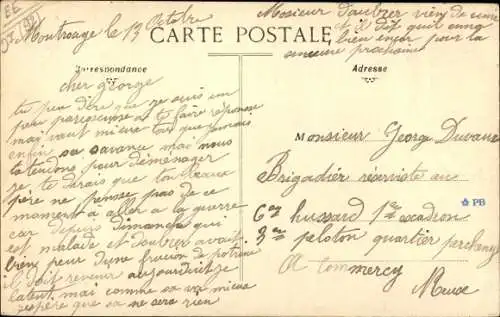 Montrouge le 13 Octobre
Monsieur Daubier vien de venir
et il dit quil
bien encor pour la
ancune prochaine
CARTE POSTALE
Correspondance
Adresse
cher george
tu peu dire que je suis un
peu paresseuse a te faire reponse
mai vaut mieux tar que jamais
enfin sa avance mai nous
tatendons pour déménager
je te dirais que ton beau
père ne pense pas de ce
moment a aller a la guerre
car depuis dimanche qui
est malade et Daubier avait
bien peur dune fluxion de poitrine
il doit revenir aujourduit je
latent mai comme sa va mieux
jespère que sa ne sera rien
Monsieur George Duvaux
Brigadier réserviste au
6em hussard 1er escadron
3em peloton quartier
A Commercy
Meuse
PB